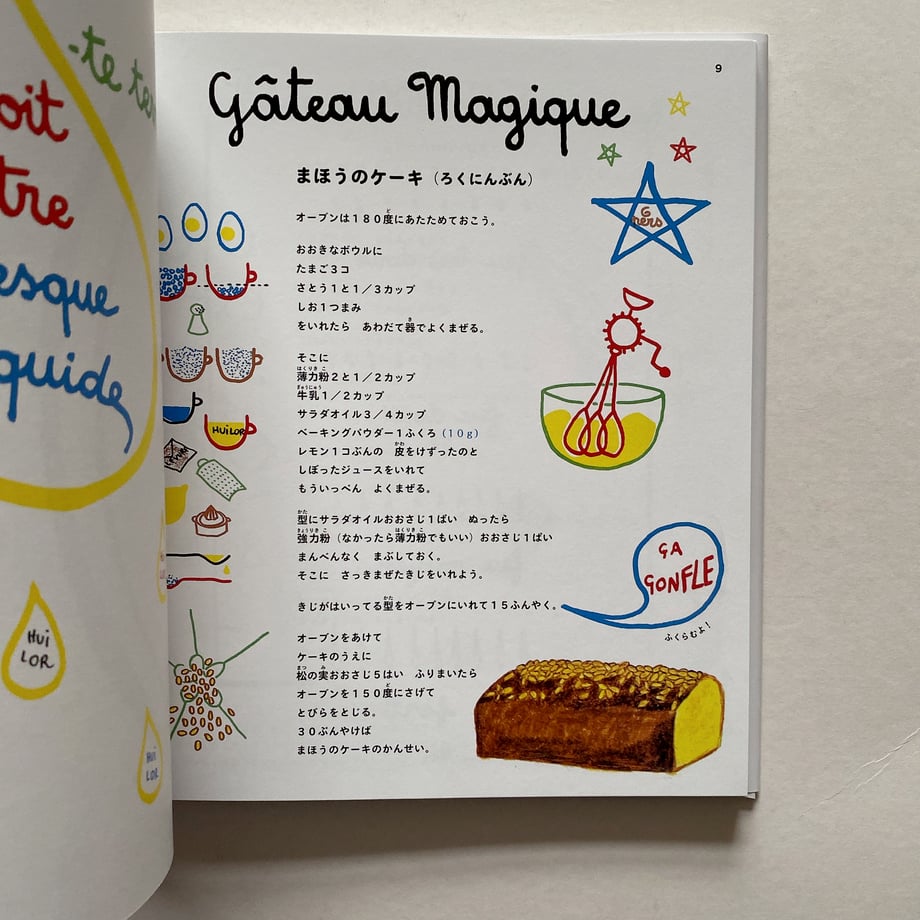 -te te
oit
tre
esque
quide
HUi
LOR
HUi
LOR
9
Gâteau Magique
まほうのケーキ（ろくにんぶん）
オーブンは１８０度にあたためておこう。
おおきなボウルに
たまご３コ
さとう１と１／３カップ
しお１つまみ
をいれたら　あわだて器でよくまぜる。
そこに
薄力粉２と１／２カップ
牛乳１／２カップ
サラダオイル３／４カップ
ベーキングパウダー１ふくろ（10g）
レモン１コぶんの　皮をけずったのと
しぼったジュースをいれて
もういっぺん　よくまぜる。
型にサラダオイルおおさじ１ぱい　ぬったら
強力粉（なかったら薄力粉でもいい）おおさじ１ぱい
まんべんなく　まぶしておく。
そこに　さっきまぜたきじをいれよう。
きじがはいってる型をオーブンにいれて１５ふんやく。
オーブンをあけて
ケーキのうえに
松の実おおさじ５はい　ふりまいたら
オーブンを１５０度にさげて
とびらをとじる。
３０ぷんやけば
まほうのケーキのかんせい。
HUiLOR
6
pers
ÇA
GONFLE
ふくらむよ！